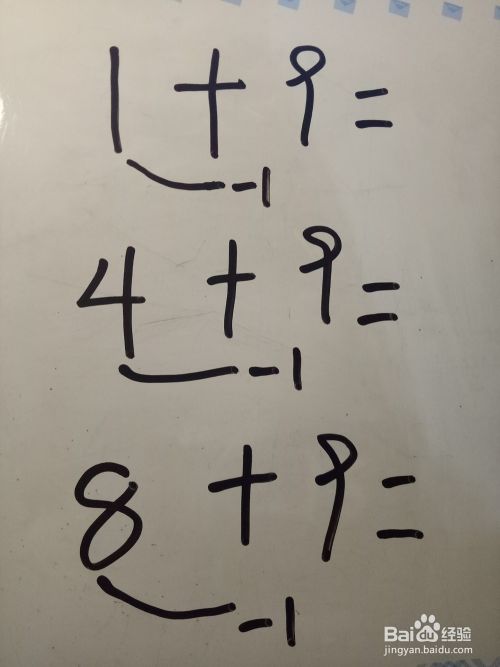 1 + 9 =
-1
4 + 9 =
-1
8 + 9 =
-1
Bai度经验
jingyan.baidu.com